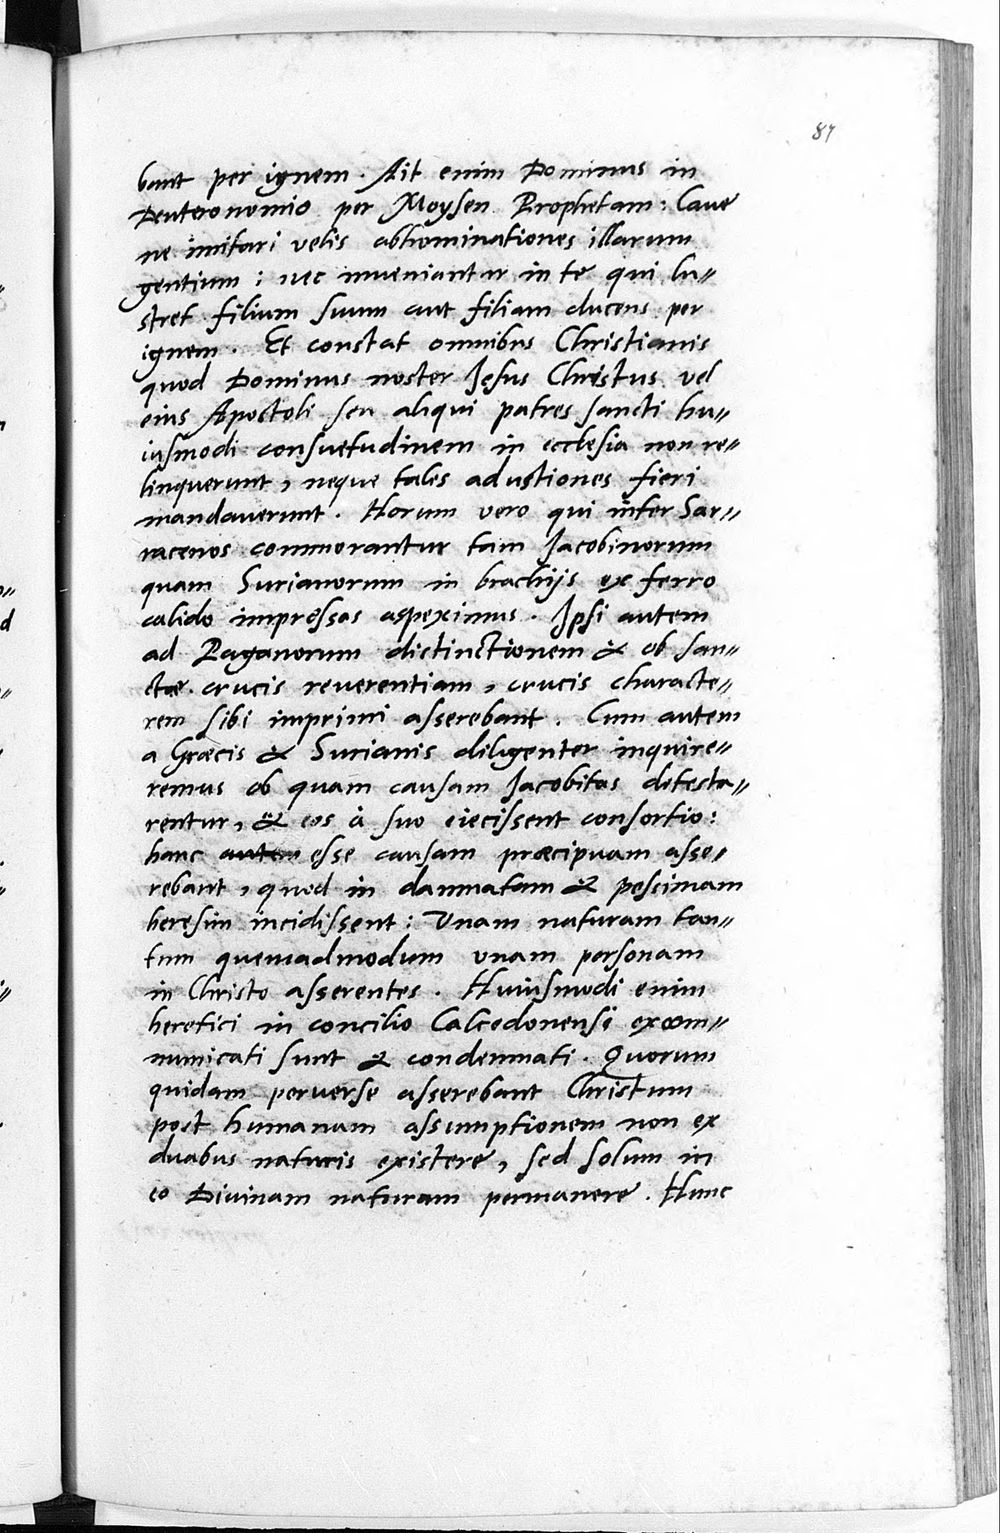 87
bant per ignem. Ait enim Dominus in
Deuteronomio per Moysen Prophetam: Cave
ne imitari velis abhominationes illarum
gentium: nec inveniantur in te qui lu〃
stret filium suum aut filiam ducens per
ignem. Et constat omnibus Christianis
quod Dominus noster Jesus Christus vel
eius Apostoli seu aliqui patres sancti hu〃
iusmodi consuetudinem in ecclesia non re〃
linquerunt, neque tales adustiones fieri
mandaverunt. Horum vero qui inter Sar〃
racenos commorantur tam Jacobinorum
quam Surianorum in brachijs ex ferro
calido impressas aspeximus. Ipsi autem
ad Paganorum distinctionem & ob san〃
ctæ crucis reverentiam, crucis characte〃
rem sibi imprimi asserebant. Cum autem
a Græcis & Surianis diligenter inquire〃
remus ob quam causam Jacobitas detesta〃
rentur, & eos à suo eiecissent consortio:
hanc autem esse causam præcipuam asse〃
rebant, quod in damnatam & pessimam
heresim incidissent: Unam naturam tan〃
tum quemadmodum unam personam
in Christo asserentes. Huiusmodi enim
heretici in concilio Calcedonensi excom〃
municati sunt & condemnati. Quorum
quidam perverse asserebant Christum
post humanam assumptionem non ex
duabus naturis existere, sed solum in
eo Divinam naturam permanere. Hunc